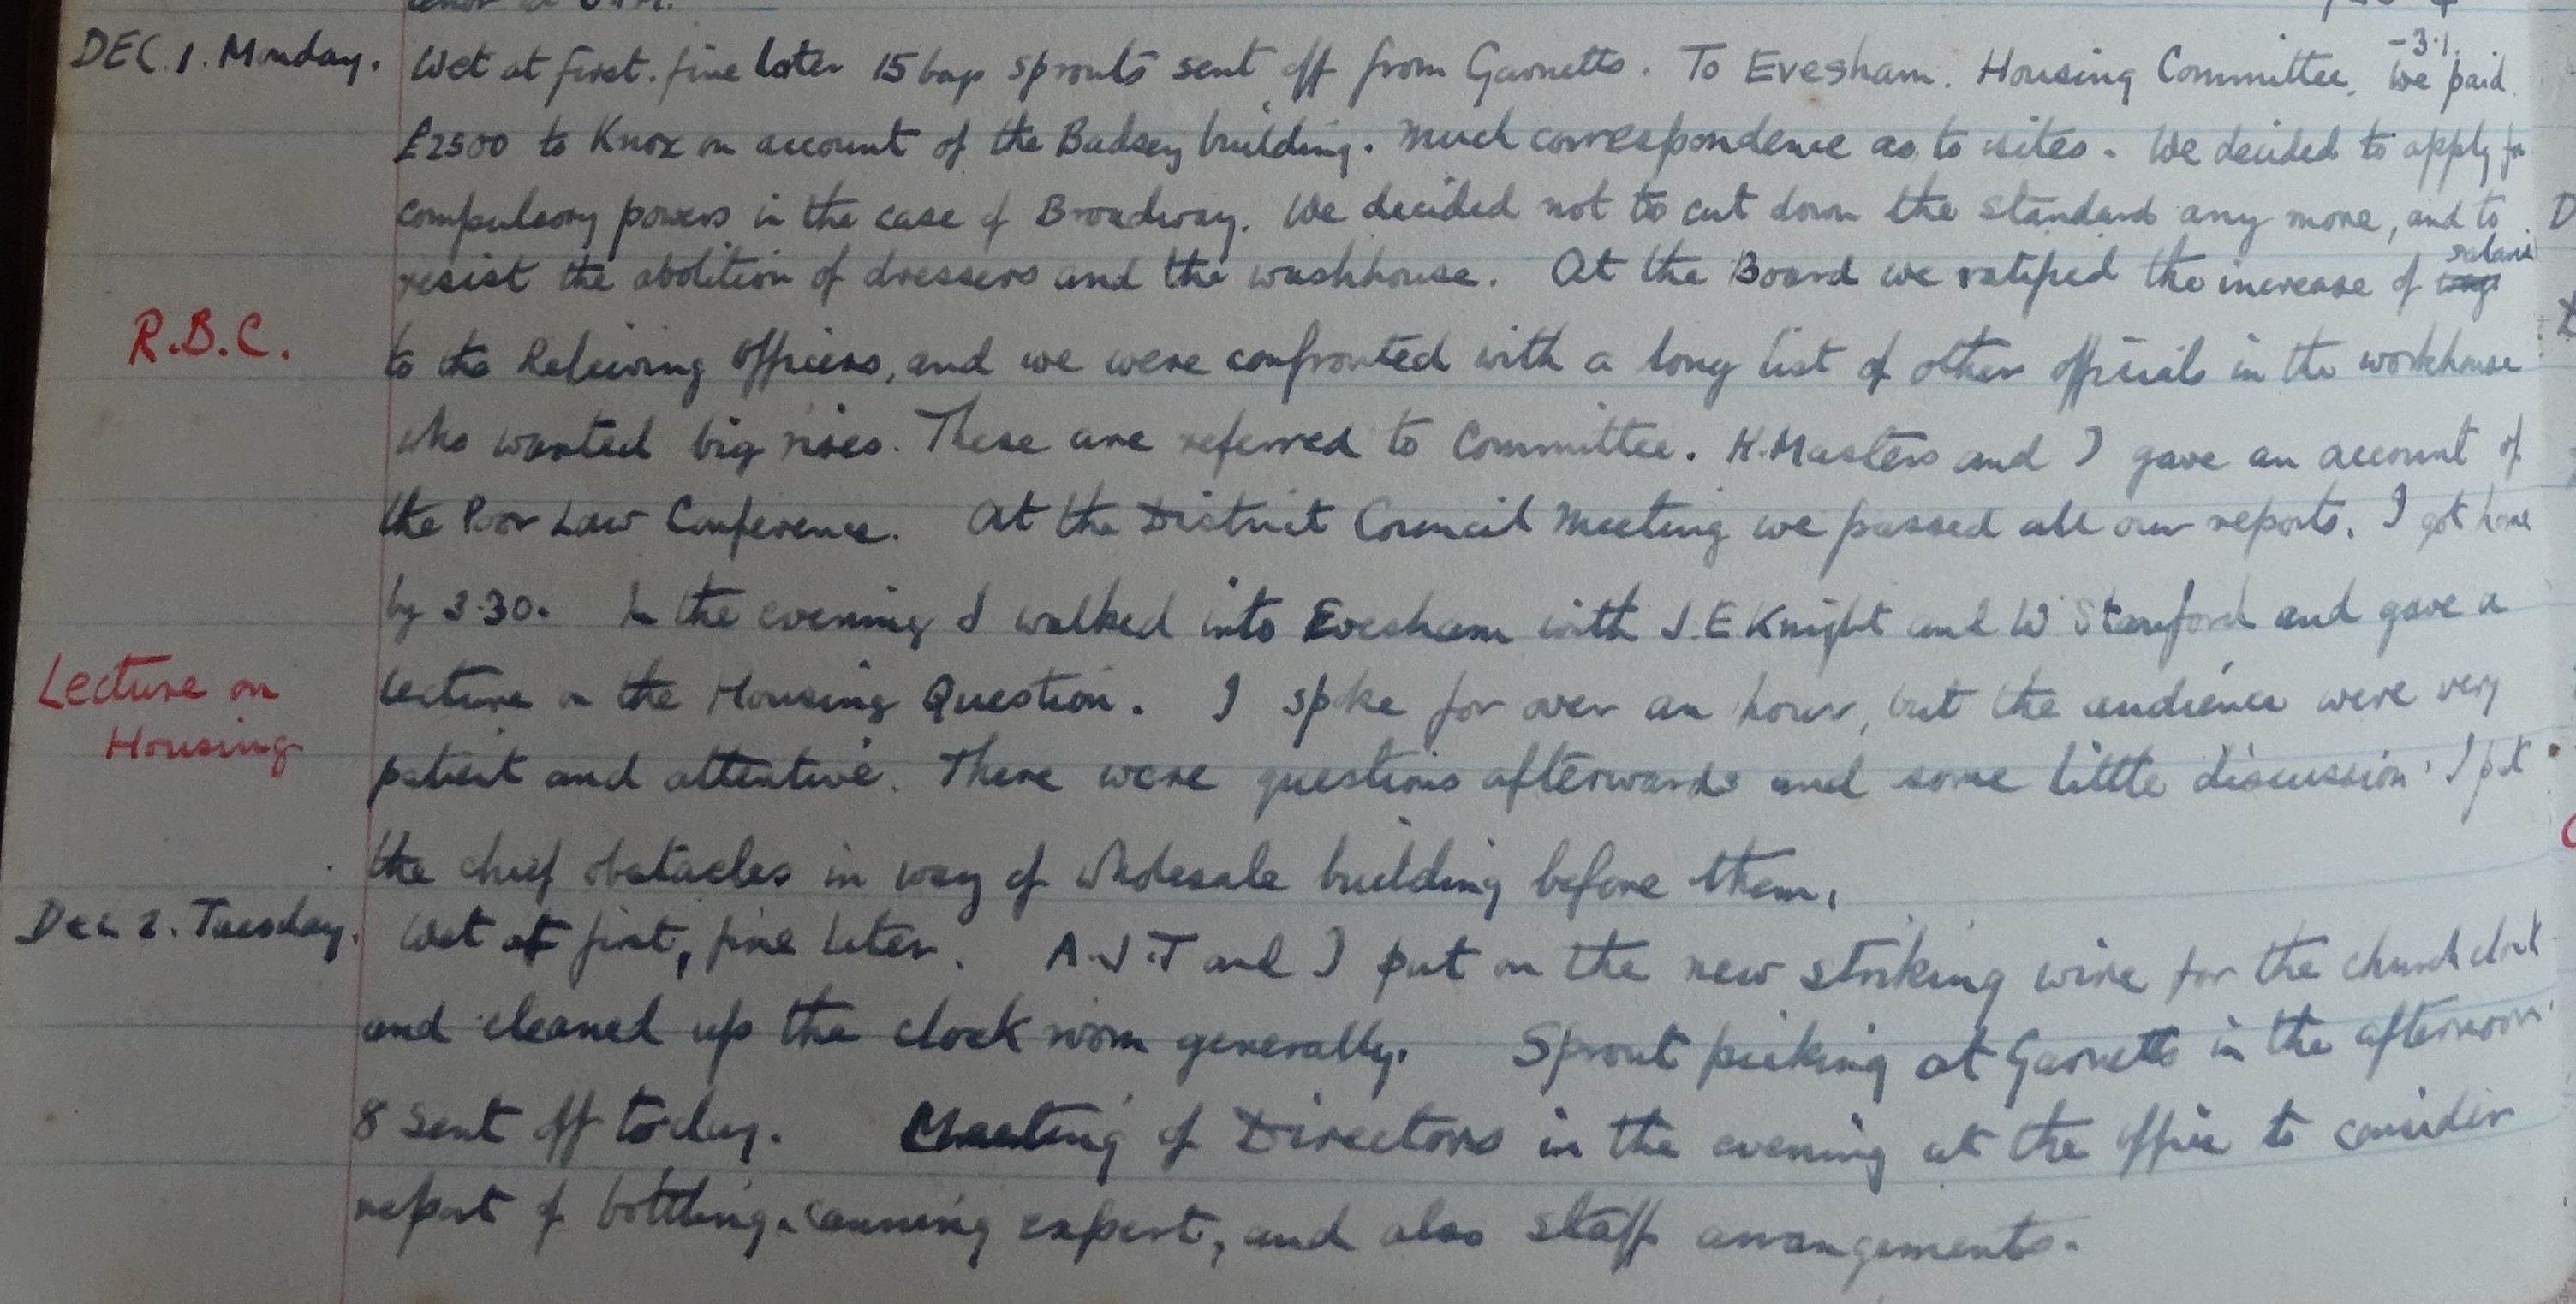 DEC. 1. Monday. Wet at first. fine later 15 bags sprouts sent off from Garnetts. To Evesham. Housing Committee. We paid
-3.1.
£2500 to Knox on account of the Badsey building. Much correspondence as to sites. We decided to apply for
compulsory powers in the case of Broadway. We decided not to cut down the standard any more, and to
resist the abolition of dressers and the washhouse. At the Board we ratified the increase of salaries
R.B.C.
to the Relieving Officers, and we were confronted with a long list of other officials in the workhouse
who wanted big rises. These are referred to Committee. H. Masters and I gave an account of
the Poor Law Conference. At the District Council Meeting we passed all our reports. I got home
by 3.30. In the evening I walked into Evesham with J.E Knight and W Stanford and gave a
Lecture on
Housing
lecture on the Housing Question. I spoke for over an hour, but the audience were very
patient and attentive. There were questions afterwards and some little discussion. I put
the chief obstacles in way of wholesale building before them.
Dec 2. Tuesday. Wet at first, fine later. A.J.T and I put on the new striking wire for the church clock
and cleaned up the clock room generally. Sprout picking at Garnetts in the afternoon.
8 sent off today. Meeting of Directors in the evening at the office to consider
report of bottling & canning expert, and also staff arrangements.